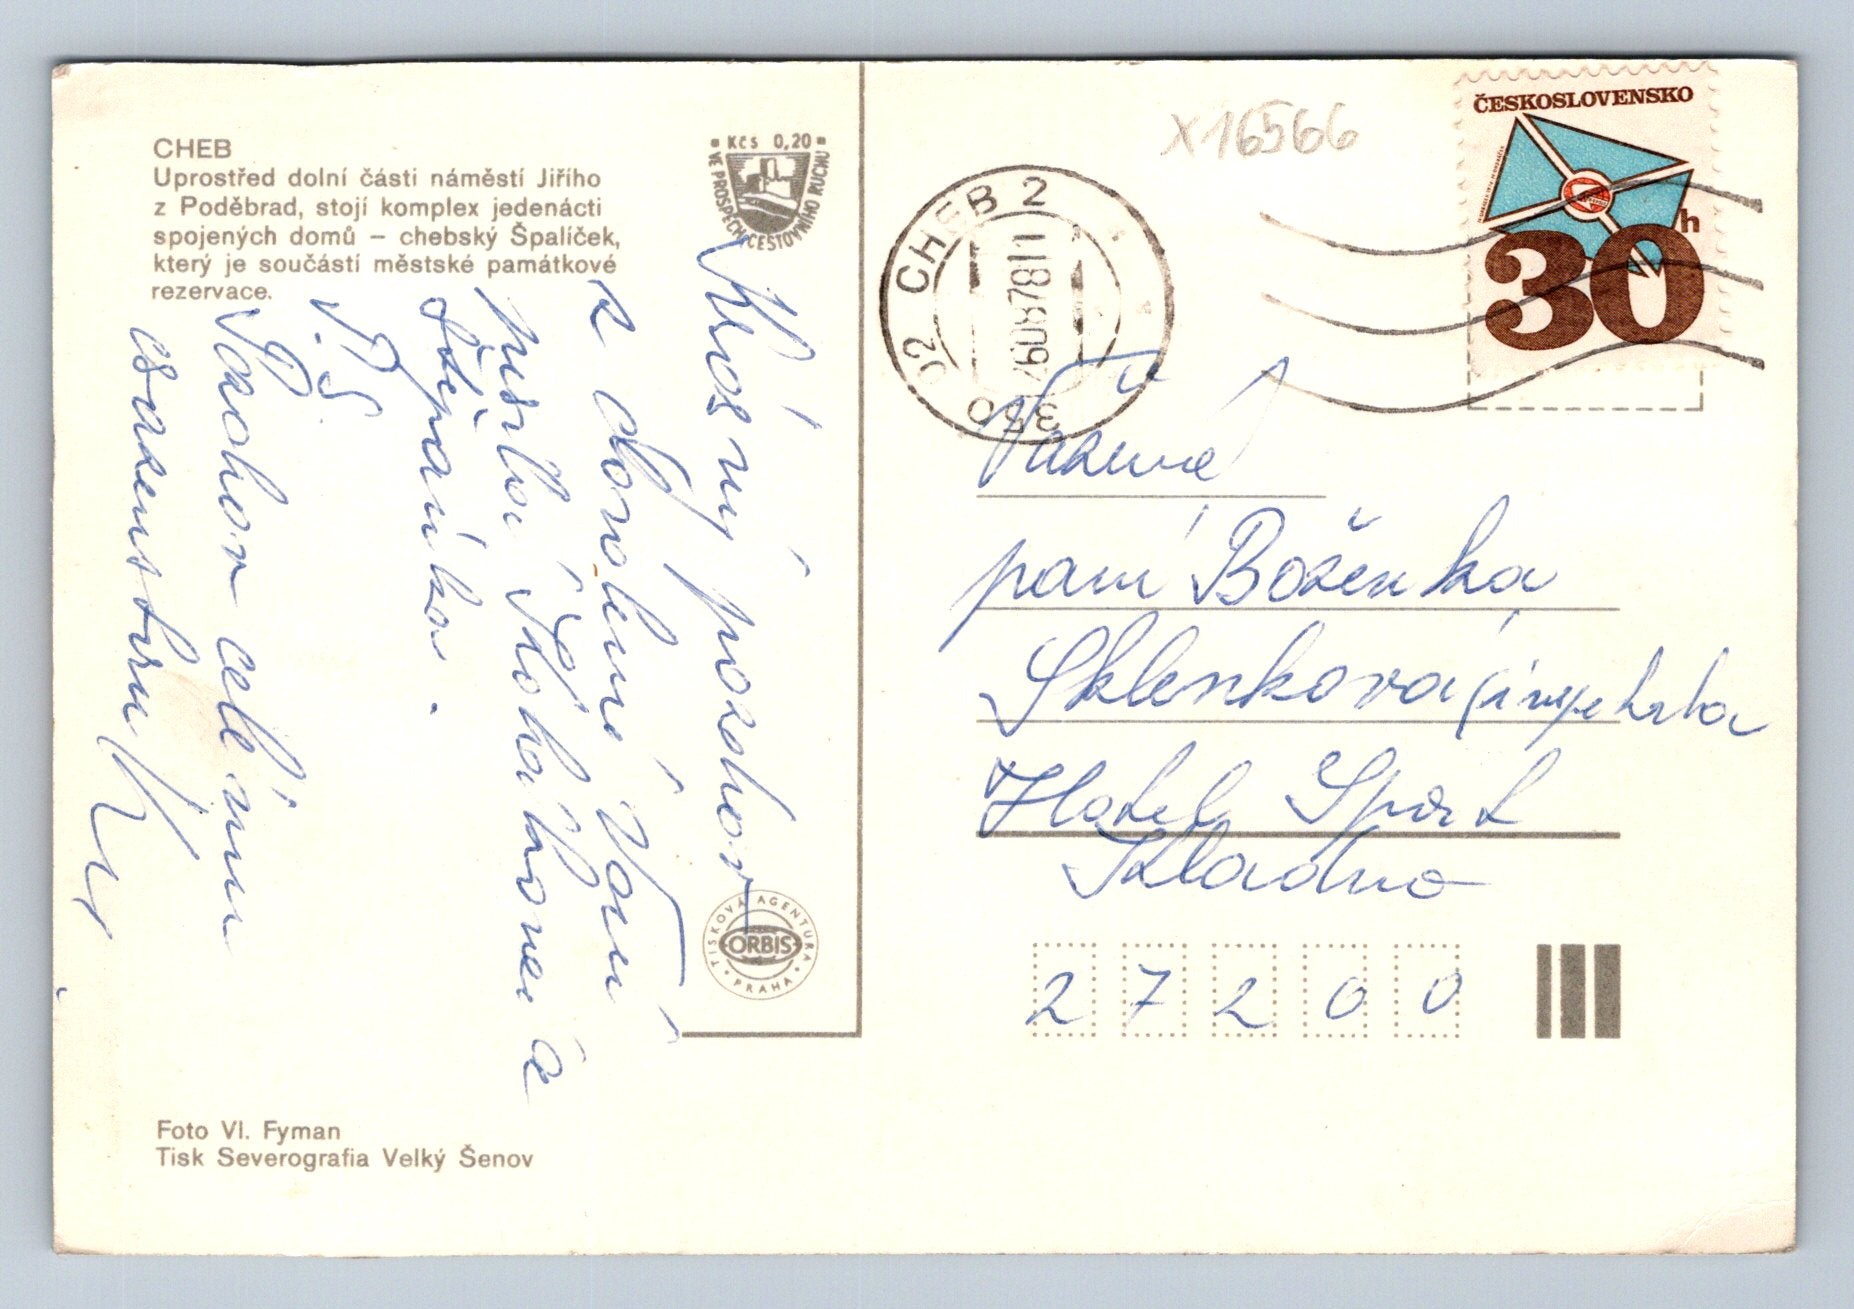 CHEB
Uprostřed dolní části náměstí Jiřího
z Poděbrad, stojí komplex jedenácti
spojených domů – chebský Špalíček,
který je součástí městské památkové
rezervace.
Kčs 0,20
VE PROSPĚCH CESTOVNÍHO RUCHU
Krásný pozdrav
z dovolené Vám
posílá
Štěpánka.
P.S.
Pozdrav celému
TISKOVÁ AGENTURA
ORBIS
PRAHA
Foto Vl. Fyman
Tisk Severografia Velký Šenov
X16566
ČESKOSLOVENSKO
30h
CHEB 2
350 02
Vážená
paní Boženka
Sklenková
Hotel Sport
Kladno
27200